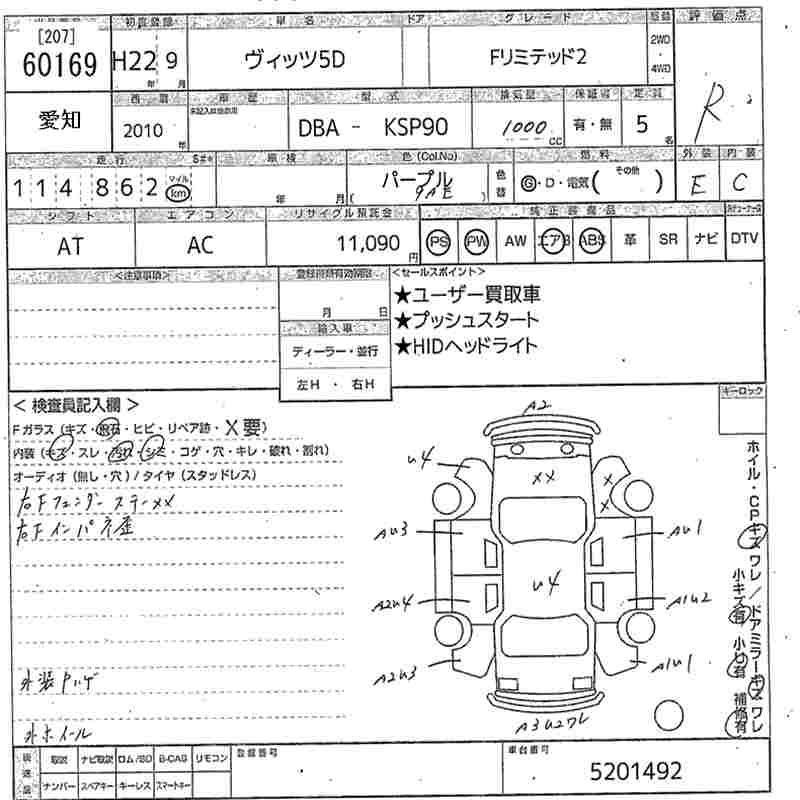 初度登録 車名 ドア グレード 評価点
[207]
60169 H22 年 9 月 ヴィッツ5D Fリミテッド2 2WD ・ 4WD R
愛知 西暦 車歴 型式 排気量 保証書 定員
2010 年 DBA - KSP90 1000 cc 有・無 5 名
走行 車検 色(Col.No) 燃料 外装 内装
114862 マイル km 年 月 パープル ( 9AE ) 色替 G・D・電気( その他 ) E C
シフト エアコン リサイクル預託金 純正装備品
AT AC 11,090 円 PS PW AW エアB ABS 革 SR ナビ DTV
<注意事項> 登録時有効期限 <セールスポイント>
月 日 ★ユーザー買取車
輸入車 ★プッシュスタート
ディーラー・並行 ★HIDヘッドライト
左H ・ 右H
キーロック
< 検査員記入欄 >
Fガラス (キズ・飛石・ヒビ・リペア跡・X要)
内装 (キズ・スレ・汚れ・シミ・コゲ・穴・キレ・破れ・割れ)
オーディオ (無し・穴) / タイヤ (スタッドレス)
右Fフェンダーステーメメ
右Fインパネ歪
外装
外ホイール
A2
U4 XX X
X
AU3 AU1
U4
A2U4 A1U2
A2U3 A1U1
A3U2ワレ
ホイル・CPキズワレ/ドアミラーキズワレ
小キズ有 小U有 補修有
取説 ナビ取説 ロム/SD B-CAS リモコン 登録番号 車台番号
ナンバー スペアキー キーレス スマートキー 5201492